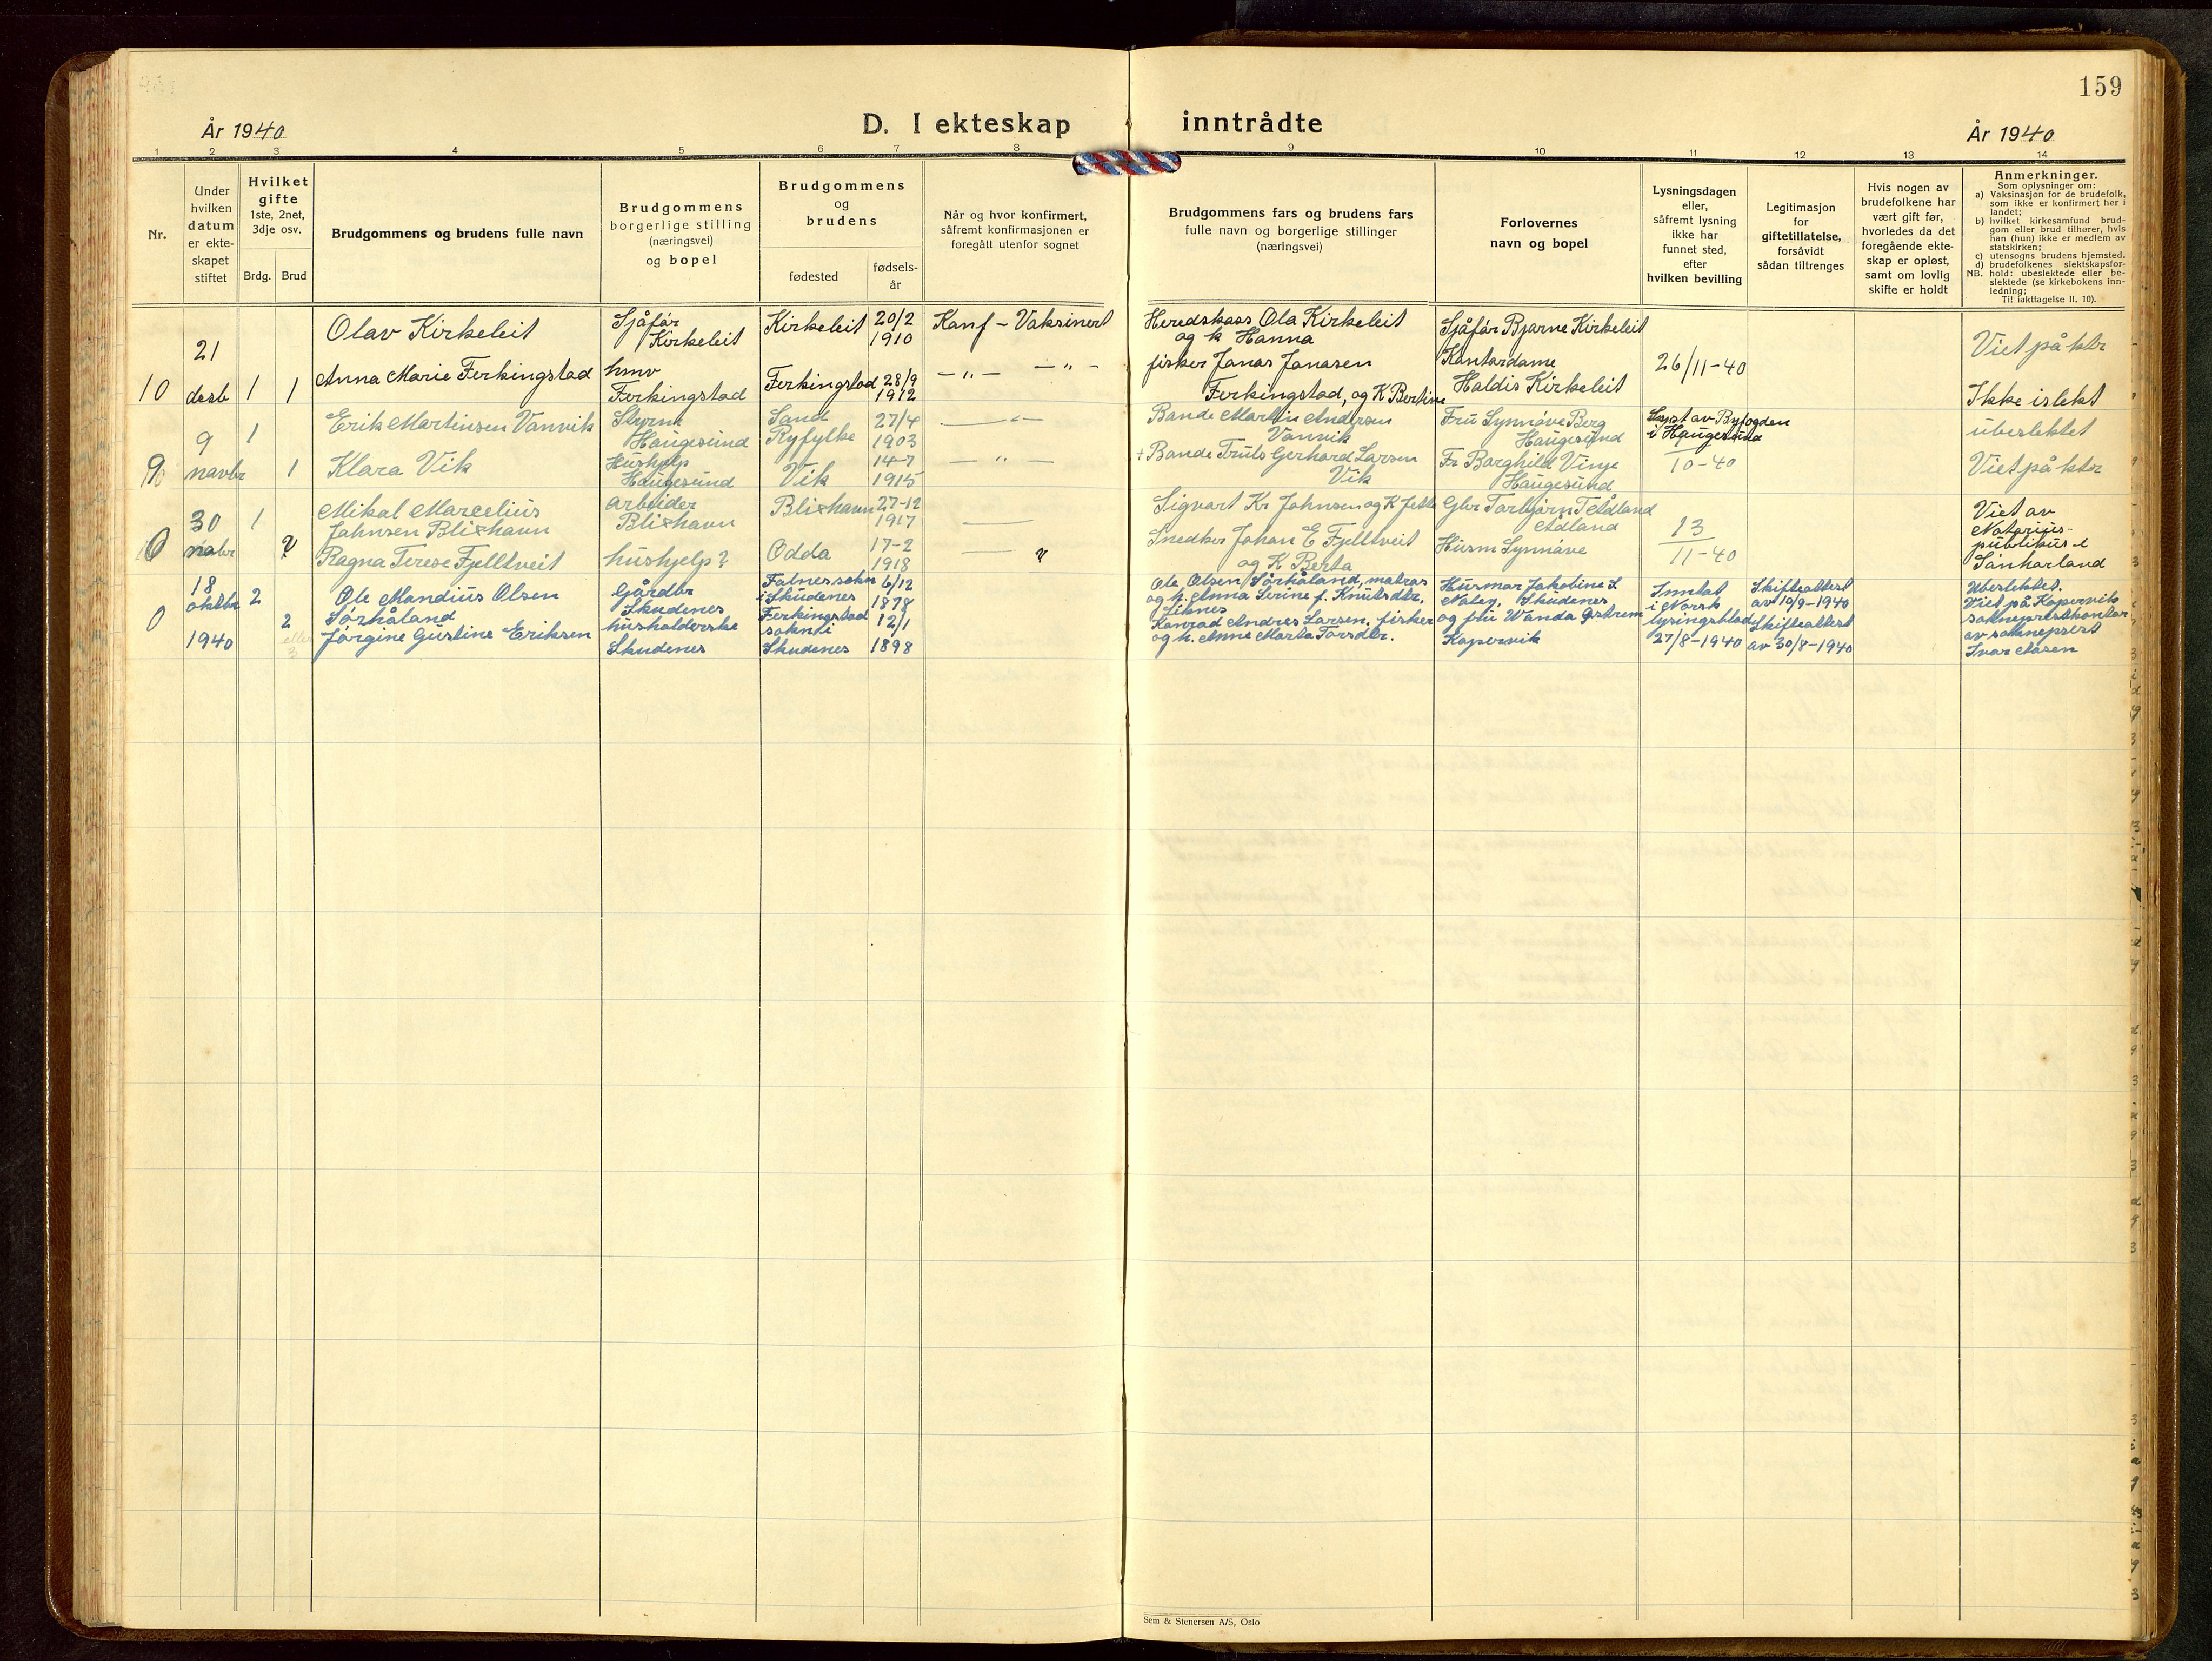 159
År 1940
D. I ekteskap inntrådte
År 1940
1 2 3 4 5 6 7 8 9 10 11 12 13 14
Nr.
Under
hvilken
datum
er ekte-
skapet
stiftet
Hvilket
gifte
1ste, 2net,
3dje osv.
Brdg. Brud
Brudgommens og brudens fulle navn
Brudgommens
borgerlige stilling
(næringsvei)
og bopel
Brudgommens
og
brudens
fødested
fødsels-
år
Når og hvor konfirmert,
såfremt konfirmasjonen er
foregått utenfor sognet
Brudgommens fars og brudens fars
fulle navn og borgerlige stillinger
(næringsvei)
Forlovernes
navn og bopel
Lysningsdagen
eller,
såfremt lysning
ikke har
funnet sted,
efter
hvilken bevilling
Legitimasjon
for
giftetillatelse,
forsåvidt
sådan tiltrenges
Hvis nogen av
brudefolkene har
vært gift før,
hvorledes da det
foregående ekte-
skap er opløst,
samt om lovlig
skifte er holdt
Anmerkninger.
Som oplysninger om:
a) Vaksinasjon for de brudefolk,
som ikke er konfirmert her i
landet;
b) hvilket kirkesamfund brud-
gom eller brud tilhører, hvis
han (hun) ikke er medlem av
statskirken;
c) utensogns brudens hjemsted.
d) brudefolkenes slektskapsfor-
NB. hold: ubeslektede eller be-
slektede (se kirkebokens inn-
ledning;
Til iakttagelse II. 10).
10
21
desb
1 1
Olav Kirkeleit
Anna Marie Ferkingstad
Sjåfør
Kirkeleit
hmv
Ferkingstad
Kirkeleit
20/2
1910
Ferkingstad
28/9
1912
Konf - Vaksinert
-"- -"-
Heredskass Ola Kirkeleit
og k Hanna
fisker Jonas Jonasen
Ferkingstad, og K Bertine
Sjåfør Bjarne Kirkeleit
Kontordame
Haldis Kirkeleit
26/11-40
Viet på ktr
Ikke islekt
9
novbr
1
1
Erik Martinsen Vanvik
Klara Vik
Styrm
Haugesund
Hushjelp
Haugesund
Sand
Ryfylke
27/4
1903
Vik
14-7
1915
Bonde Martin Andersen
Vanvik
+ Bonde Truls Gerhard Larsen
Vik
Fru Synnøve Berg
Haugesund
Fr Borghild Vinje
Haugesund
Lyst av Byfogden
i Haugesund
10-40
ubeslektet
Viet på ktr
0
30
nobr
1
?
Mikal Marcelius
Johnsen Blixhavn
Ragna Terese Fjelltveit
arbeider
Blixhavn
hushjelp?
Blixhavn
27-12
1917
Odda
17-2
1918
Sigvart Kr Johnsen og K
Snedker Johan E Fjelltveit
og K Berta
Gbr Torbjørn T Ådland
Ådland
Husm Synnøve
13
11-40
Viet av
Notarius-
publikus i
Sønhorland
0
18
oktbr
1940
2
2
eller
3
Ole Mandius Olsen
Sørhåland
Jørgine Gustine Eriksen
Gårdbr
Skudenes
husholderske
Skudenes
Falnes sokn
i Skudenes
6/12
1878
Ferkingstad
sokn i
Skudenes
12/1
1898
Ole Olsen Sørhåland, matros
og h. Anna Serine f. Knutsdtr.
Liknes
Konrad Andres Larsen, fisker
og h. Anne Marta Torsdtr.
Husmor Jakobine S.
Naley, Skudenes
og frk Wanda Østrem
Kopervik
Inntat
i Norsk
lysingsblad
27/8-1940
Skifteattest
av 10/9-1940
Skifteattest
av 30/8-1940
Ubeslektet.
Viet på Kopervik
sokneprestkontor
av sokneprest
Ivar Åsen
Sem & Stenersen A/S, Oslo